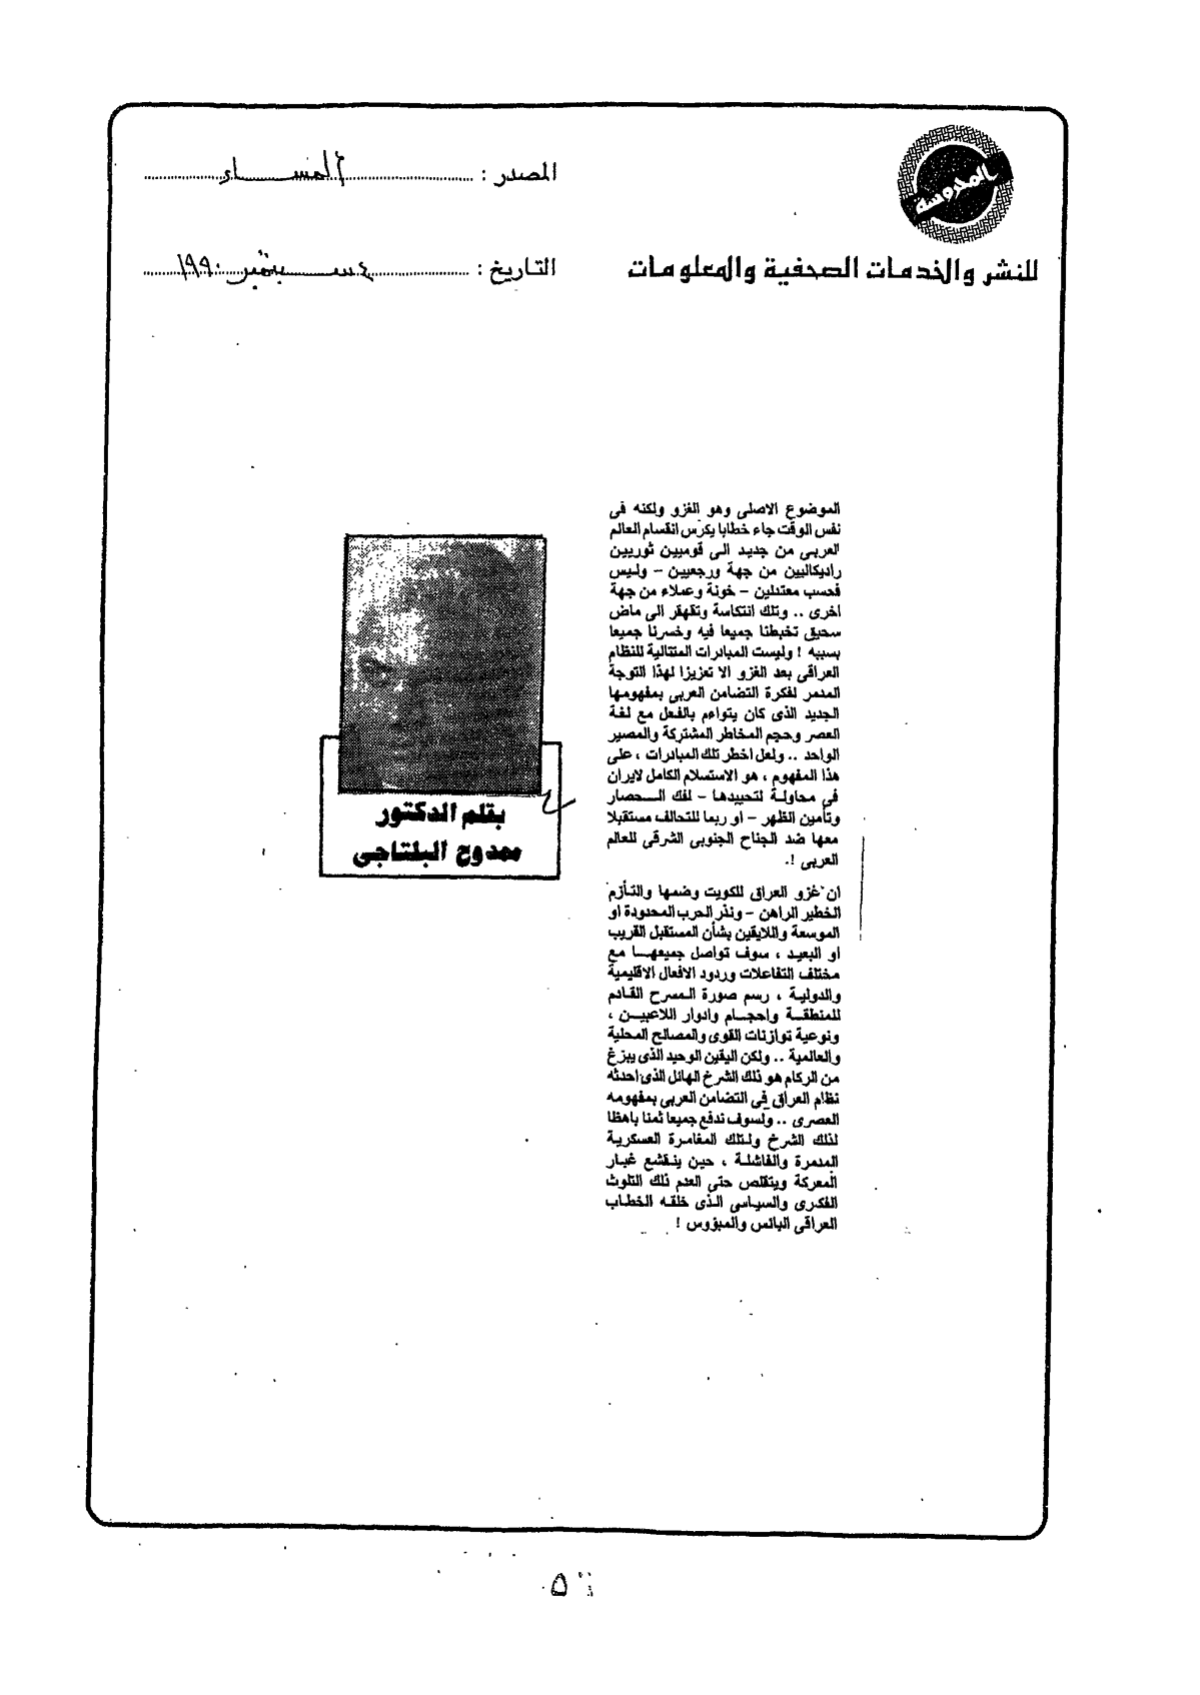 المحروسة
للنشر والخدمات الصحفية والمعلومات
المصدر : المساء
التاريخ : ٤ سبتمبر ١٩٩٠
الموضوع الاصلى وهو الغزو ولكنه فى
نفس الوقت جاء خطابا يكرس انقسام العالم
العربى من جديد الى قوميين ثوريين
راديكاليين من جهة ورجعيين – وليس
فحسب معتدلين – خونة وعملاء من جهة
اخرى .. وتلك انتكاسة وتقهقر الى ماض
سحيق تخبطنا جميعا فيه وخسرنا جميعا
بسببه ! وليست المبادرات المتتالية للنظام
العراقى بعد الغزو الا تعزيزا لهذا التوجة
المدمر لفكرة التضامن العربى بمفهومها
الجديد الذى كان يتواءم بالفعل مع لغة
العصر وحجم المخاطر المشتركة والمصير
الواحد .. ولعل اخطر تلك المبادرات ، على
هذا المفهوم ، هو الاستسلام الكامل لايران
فى محاولة لتحييدها – لفك الحصار
وتأمين الظهر – او ربما للتحالف مستقبلا
معها ضد الجناح الجنوبى الشرقى للعالم
العربى !.
ان غزو العراق للكويت وضمها والتأزم
الخطير الراهن – ونذر الحرب المحدودة او
الموسعة واللايقين بشأن المستقبل القريب
او البعيد ، سوف تواصل جميعها مع
مختلف التفاعلات وردود الافعال الاقليمية
والدولية ، رسم صورة المسرح القادم
للمنطقة واحجام وادوار اللاعبين ،
ونوعية توازنات القوى والمصالح المحلية
والعالمية .. ولكن اليقين الوحيد الذى يبزغ
من الركام هو ذلك الشرخ الهائل الذى احدثه
نظام العراق فى التضامن العربى بمفهومه
العصرى .. ولسوف ندفع جميعا ثمنا باهظا
لذلك الشرخ ولتلك المغامرة العسكرية
المدمرة والفاشلة ، حين ينقشع غبار
المعركة ويتقلص حتى العدم ذلك التلوث
الفكرى والسياسى الذى خلقه الخطاب
العراقى البائس والمبؤوس !
بقلم الدكتور
ممدوح البلتاجى